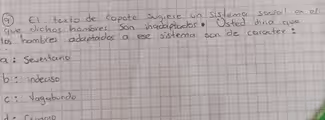 ④ El texto de Capote sugiere un sistema social en el
que dichos hombres son inadaptados. Usted diria que
los hombres adaptados a ese sistema son de caracter:
a: Sedentario
b: indeciso
c: Vagabundo
d: